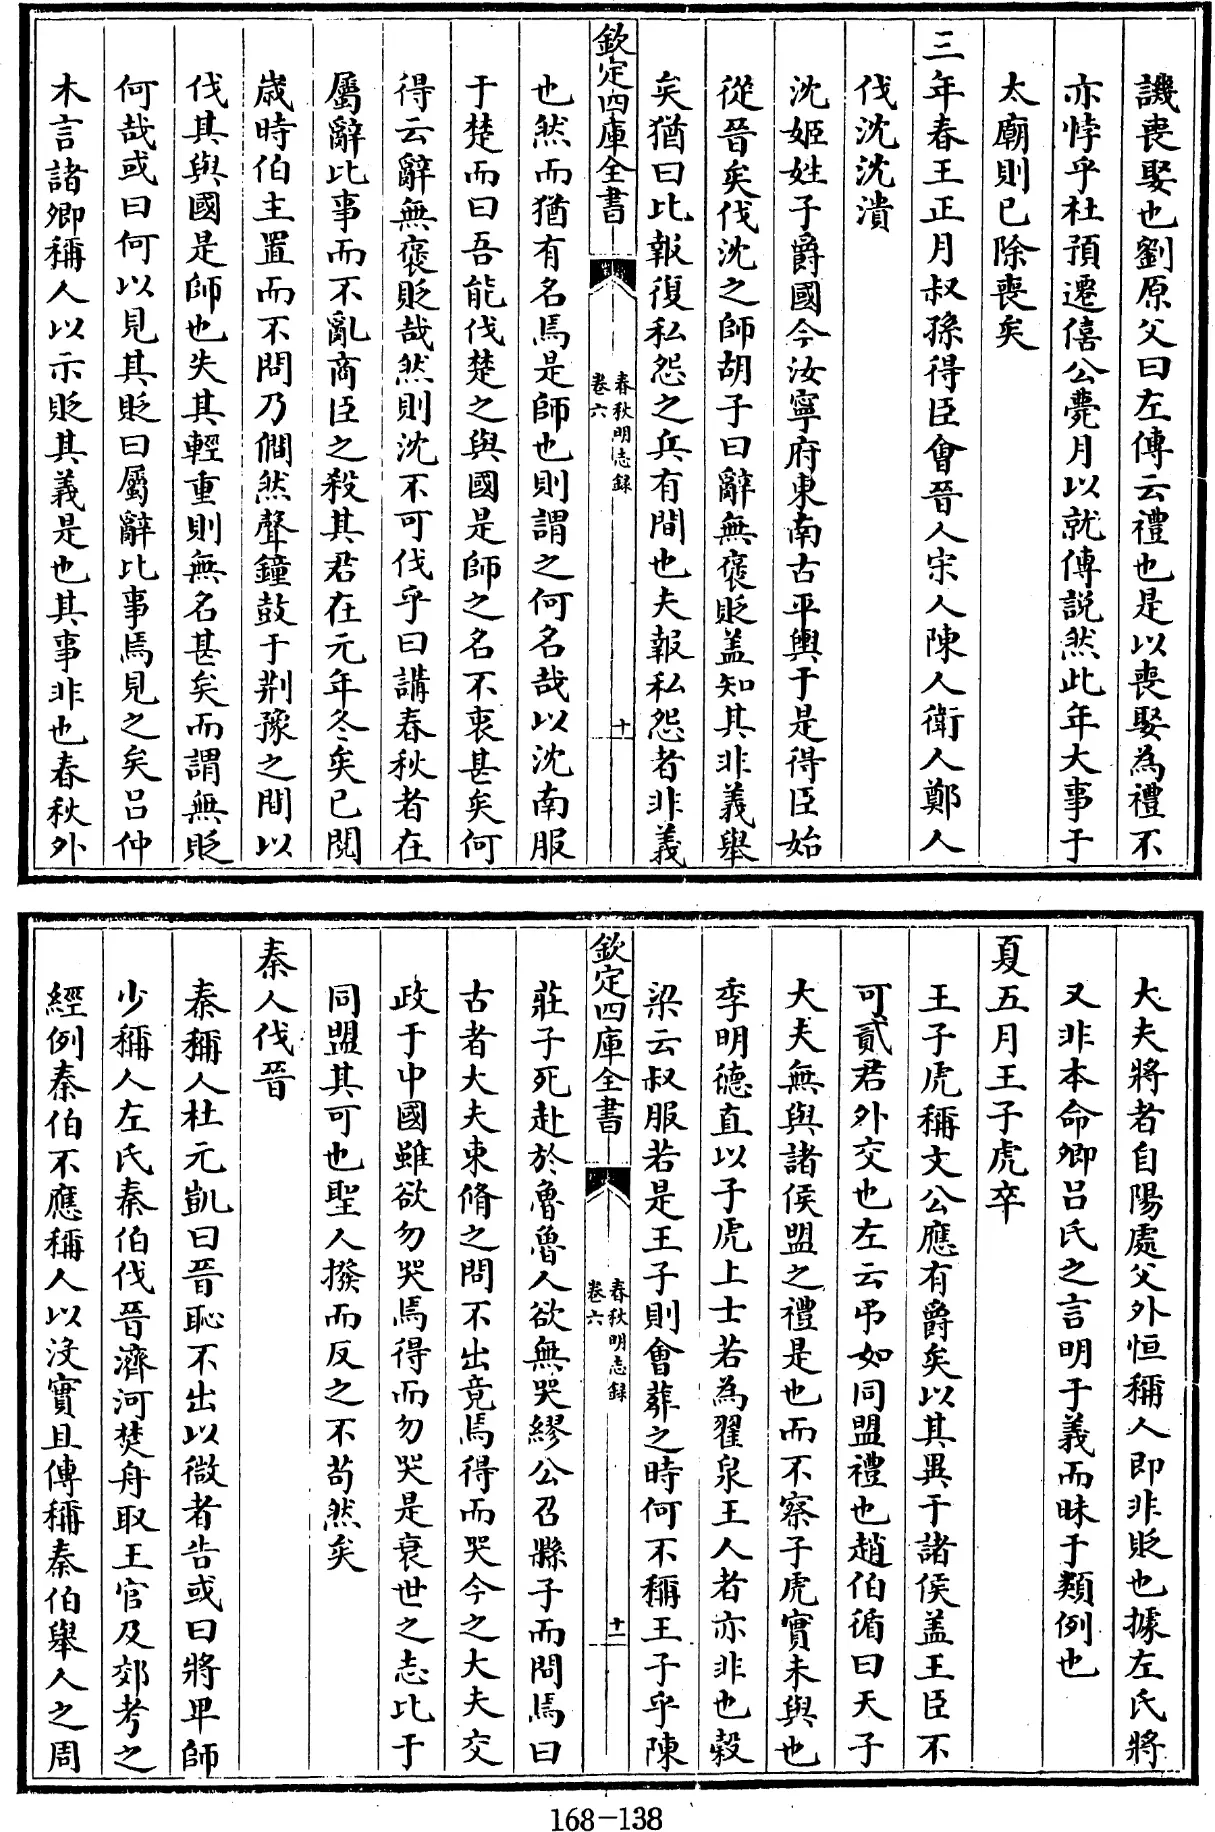 譏喪娶也劉原父曰左傳云禮也是以喪娶為禮不
亦悖乎杜預遷僖公薨月以就傳説然此年大事于
太廟則已除喪矣
三年春王正月叔孫得臣會晉人宋人陳人衛人鄭人
伐沈沈潰
沈姬姓子爵國今汝寧府東南古平輿于是得臣始
從晉矣伐沈之師胡子曰辭無褒貶盖知其非義舉
矣猶曰比報復私怨之兵有間也夫報私怨者非義
欽定四庫全書
春秋明志録
卷六
十
也然而猶有名焉是師也則謂之何名哉以沈南服
于楚而曰吾能伐楚之與國是師之名不衷甚矣何
得云辭無褒貶哉然則沈不可伐乎曰講春秋者在
屬辭比事而不亂商臣之殺其君在元年冬矣已閲
歲時伯主置而不問乃僩然聲鐘鼓于荆豫之間以
伐其與國是師也失其輕重則無名甚矣而謂無貶
何哉或曰何以見其貶曰屬辭比事焉見之矣吕仲
木言諸卿稱人以示貶其義是也其事非也春秋外
大夫將者自陽處父外恒稱人即非貶也據左氏將
又非本命卿吕氏之言明于義而昧于類例也
夏五月王子虎卒
王子虎稱文公應有爵矣以其異于諸侯盖王臣不
可貳君外交也左云弔如同盟禮也趙伯循曰天子
大夫無與諸侯盟之禮是也而不察子虎實未與也
季明德直以子虎上士若為翟泉王人者亦非也榖
梁云叔服若是王子則會葬之時何不稱王子乎陳
欽定四庫全書
春秋明志録
卷六
十一
莊子死赴於魯魯人欲無哭繆公召縣子而問焉曰
古者大夫束脩之問不出竟焉得而哭今之大夫交
政于中國雖欲勿哭焉得而勿哭是衰世之志比于
同盟其可也聖人撥而反之不茍然矣
秦人伐晉
秦稱人杜元凱曰晉恥不出以微者告或曰將卑師
少稱人左氏秦伯伐晉濟河焚舟取王官及郊考之
經例秦伯不應稱人以沒實且傳稱秦伯舉人之周
168-138